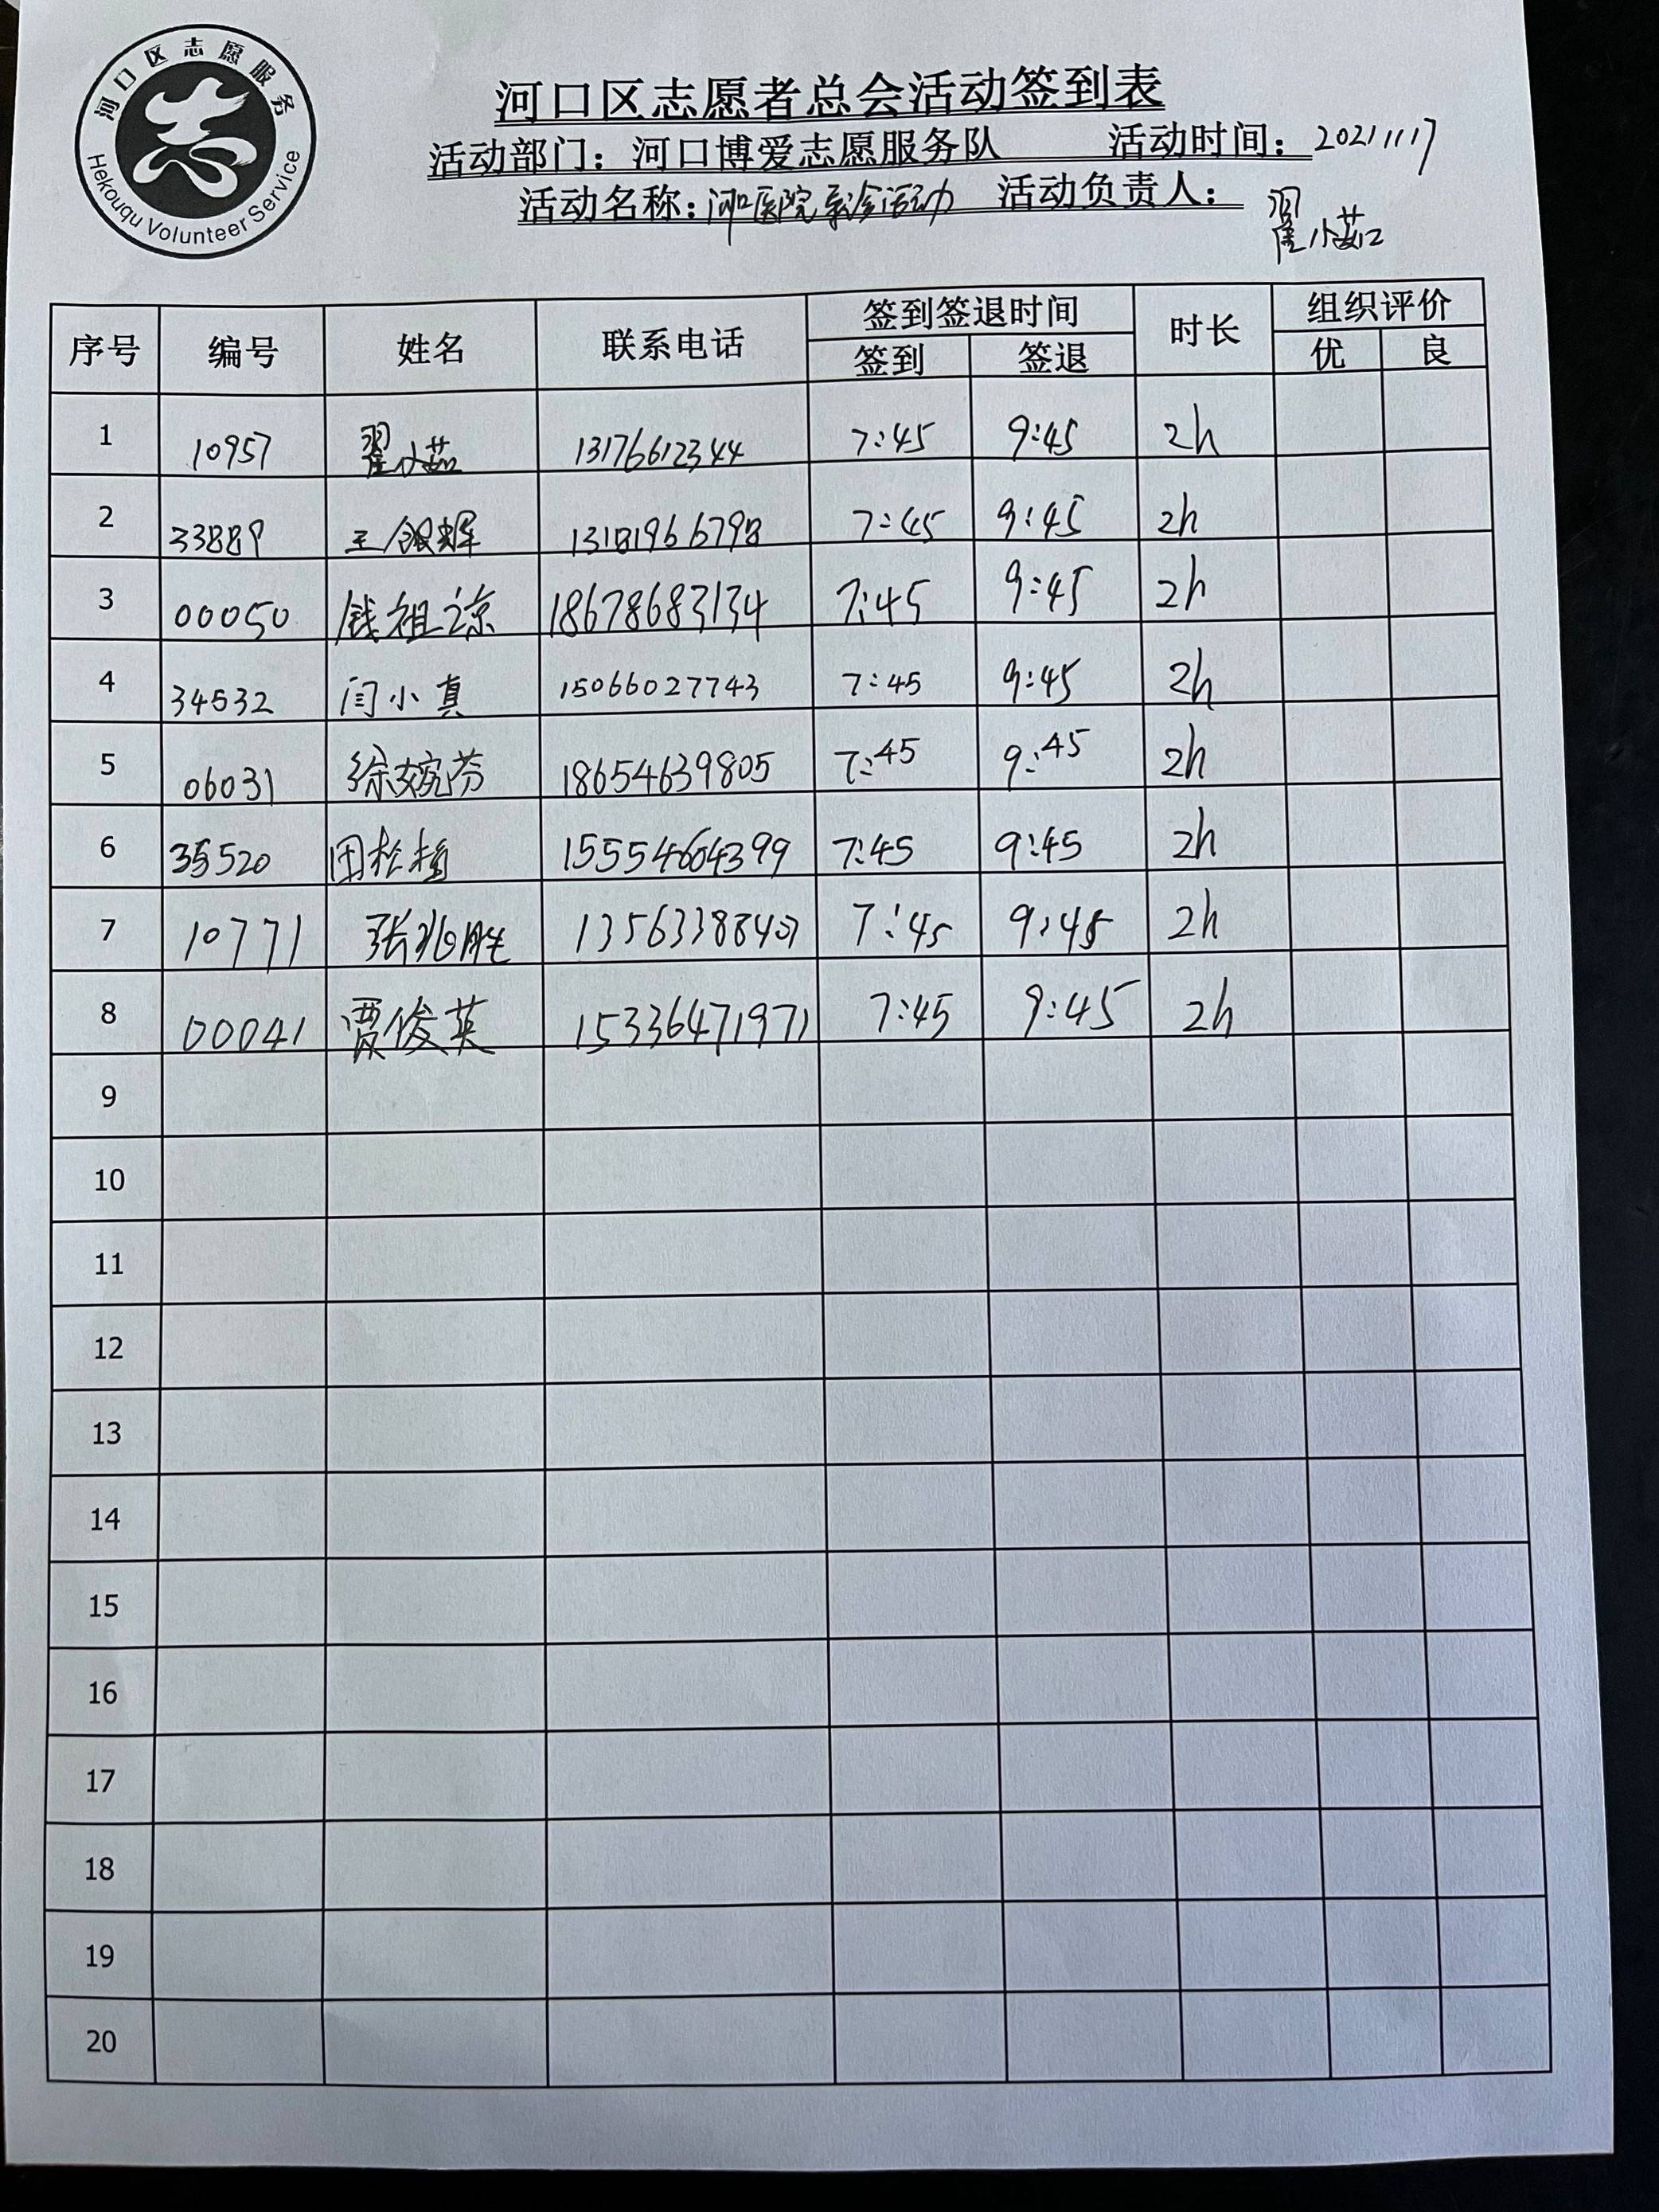 河口区志愿服务
Hekouqu Volunteer Service
河口区志愿者总会活动签到表
活动部门：河口博爱志愿服务队 活动时间：20211117
活动名称：河口医院 活动 活动负责人：翟小茹
序号 编号 姓名 联系电话 签到签退时间 时长 组织评价
签到 签退 优 良
1 10957 翟小茹 13176612344 7:45 9:45 2h
2 33889 王银辉 13181966798 7:45 9:45 2h
3 00050 钱祖琼 18678683134 7:45 9:45 2h
4 34532 闫小真 15066027743 7:45 9:45 2h
5 06031 徐婉芬 18654639805 7:45 9:45 2h
6 35520 15554604399 7:45 9:45 2h
7 10771 张兆胜 7:45 9:45 2h
8 00041 贾俊英 15336471971 7:45 9:45 2h
9
10
11
12
13
14
15
16
17
18
19
20